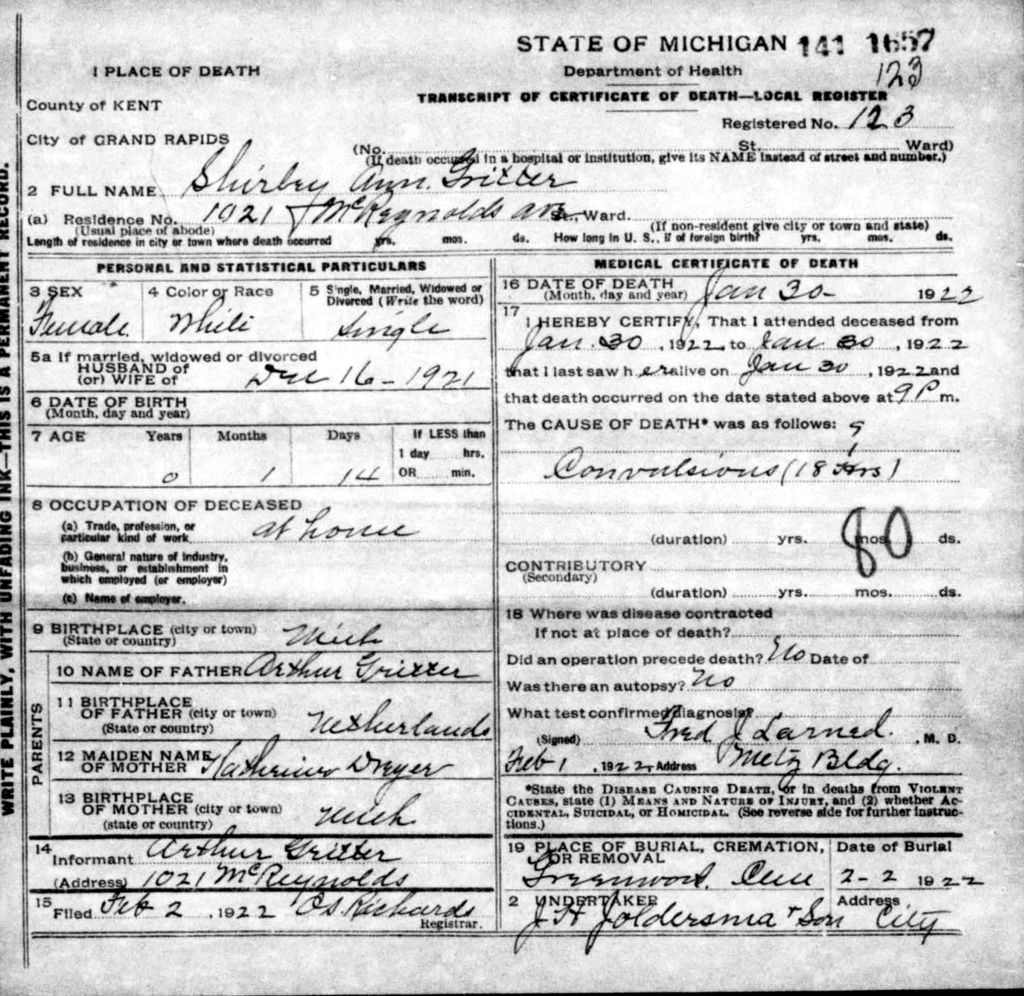 STATE OF MICHIGAN 141 1657
1 PLACE OF DEATH
Department of Health 123
County of KENT
TRANSCRIPT OF CERTIFICATE OF DEATH—LOCAL REGISTER
Registered No. 123
City of GRAND RAPIDS
(No. St. Ward)
(If death occurred in a hospital or institution, give its NAME instead of street and number.)
2 FULL NAME Shirley Ann. Gritter
(a) Residence No. 1021 McReynolds ave St., Ward.
(Usual place of abode) (If non-resident give city or town and state)
Length of residence in city or town where death occurred yrs. mos. ds. How long in U. S., if of foreign birth? yrs. mos. ds.
PERSONAL AND STATISTICAL PARTICULARS
3 SEX 4 Color or Race 5 Single, Married, Widowed or
Divorced (Write the word)
Female White Single
5a If married, widowed or divorced
HUSBAND of
(or) WIFE of Dec 16-1921
6 DATE OF BIRTH
(Month, day and year)
7 AGE Years Months Days If LESS than
1 day hrs.
0 1 14 OR min.
8 OCCUPATION OF DECEASED
(a) Trade, profession, or
particular kind of work at home
(b) General nature of industry,
business, or establishment in
which employed (or employer)
(c) Name of employer.
9 BIRTHPLACE (city or town)
(State or country) Mich
PARENTS
10 NAME OF FATHER Arthur Gritter
11 BIRTHPLACE
OF FATHER (city or town)
(State or country) Netherlands
12 MAIDEN NAME
OF MOTHER Katherine Dreyer
13 BIRTHPLACE
OF MOTHER (city or town)
(state or country) Mich
14
Informant Arthur Gritter
(Address) 1021 McReynolds
15
Filed Feb 2, 1922 C S Richards
Registrar.
MEDICAL CERTIFICATE OF DEATH
16 DATE OF DEATH
(Month, day and year) Jan 30- 1922
17
I HEREBY CERTIFY, That I attended deceased from
Jan. 30, 1922, to Jan 30, 1922
that I last saw her alive on Jan 30, 1922 and
that death occurred on the date stated above at 9P m.
The CAUSE OF DEATH* was as follows: 9
Convulsions (18 Hrs)
80
(duration) yrs. mos. ds.
CONTRIBUTORY
(Secondary)
(duration) yrs. mos. ds.
18 Where was disease contracted
If not at place of death?
Did an operation precede death? No Date of
Was there an autopsy? No
What test confirmed diagnosis?
(Signed) Fred J Larned. , M. D.
Feb 1, 1922 Address Metz Bldg.
*State the DISEASE CAUSING DEATH, or in deaths from VIOLENT
CAUSES, state (1) MEANS AND NATURE OF INJURY, and (2) whether AC-
CIDENTAL, SUICIDAL, OR HOMICIDAL. (See reverse side for further instruc-
tions.)
19 PLACE OF BURIAL, CREMATION, Date of Burial
OR REMOVAL
Greenwood. Cem 2-2 1922
2 UNDERTAKER Address
J H Joldersma + Son City
WRITE PLAINLY, WITH UNFADING INK—THIS IS A PERMANENT RECORD.